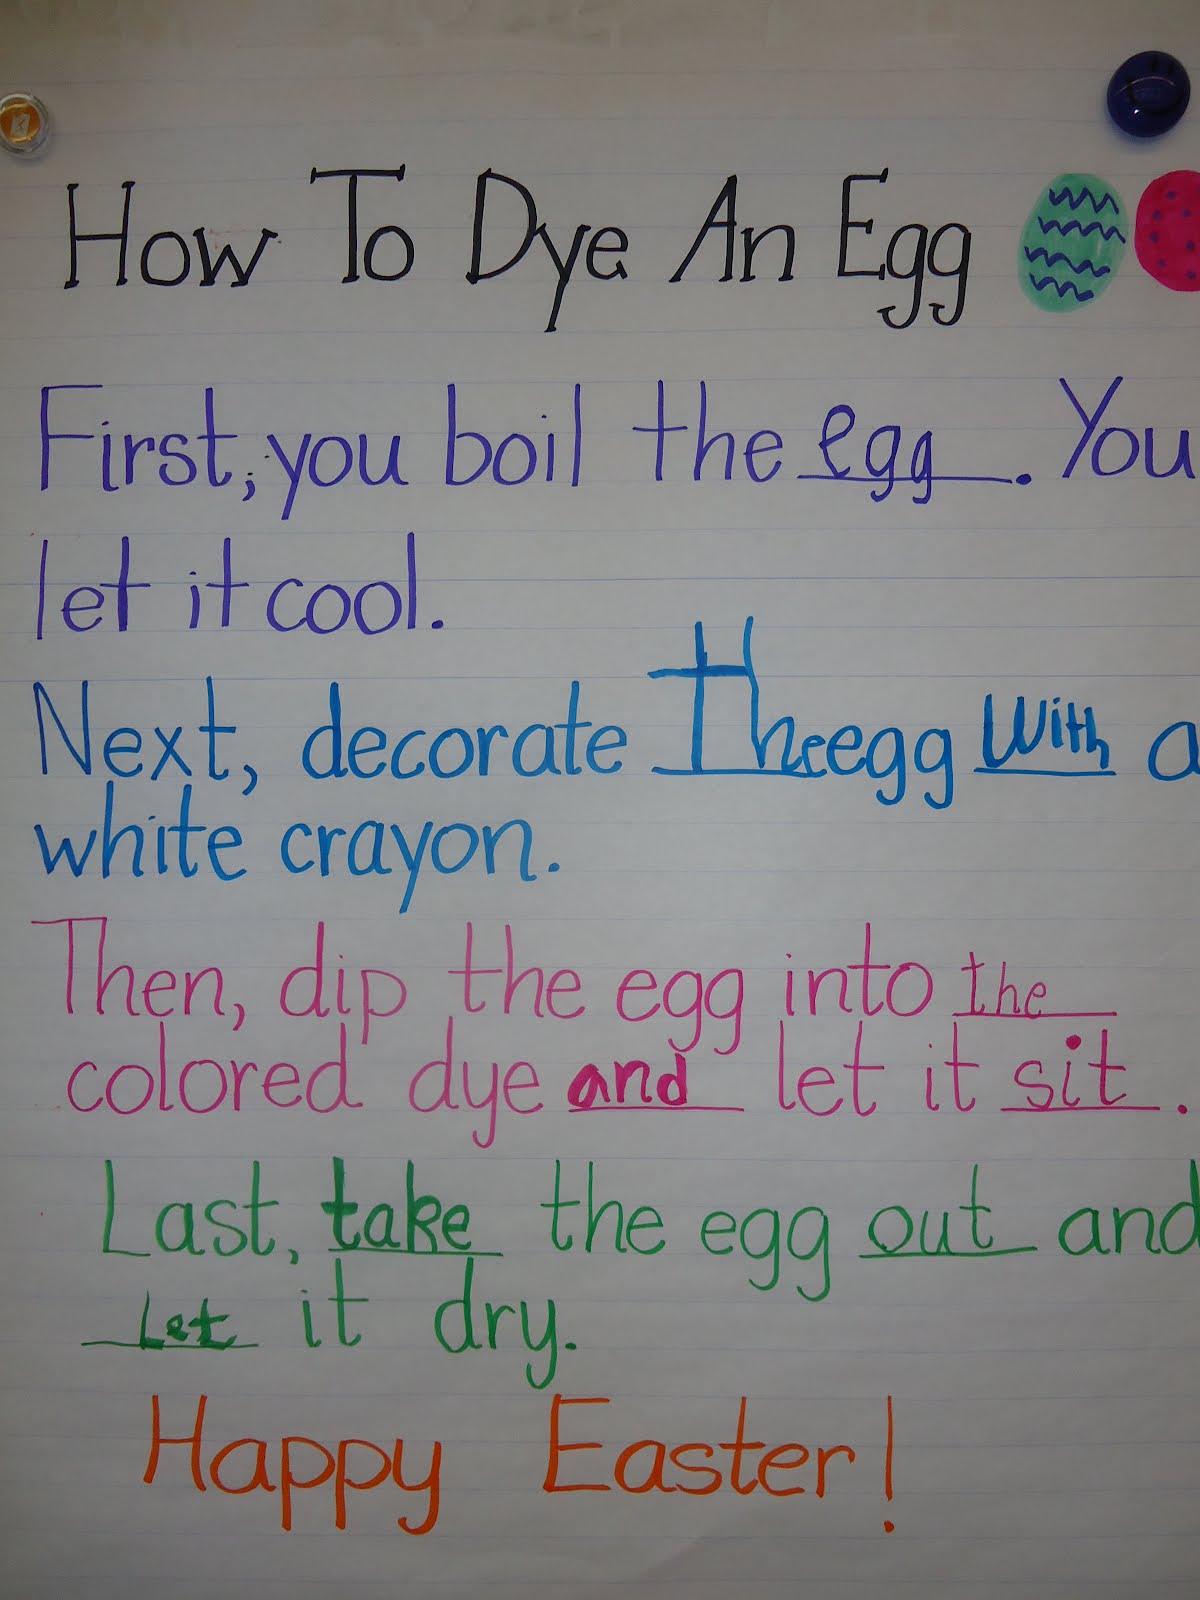 How To Dye An Egg
First, you boil the egg. You
let it cool.
Next, decorate The egg with a
white crayon.
Then, dip the egg into the
colored dye and let it sit.
Last, take the egg out and
Let it dry.
Happy Easter!